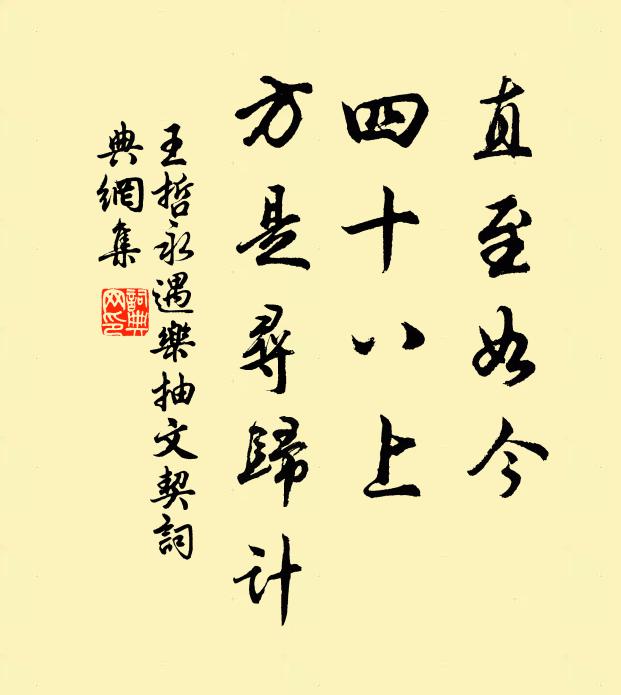 直至如今
四十八上
方是尋歸計
王哲永遇樂抽文契詞
典網集
詞典
网印